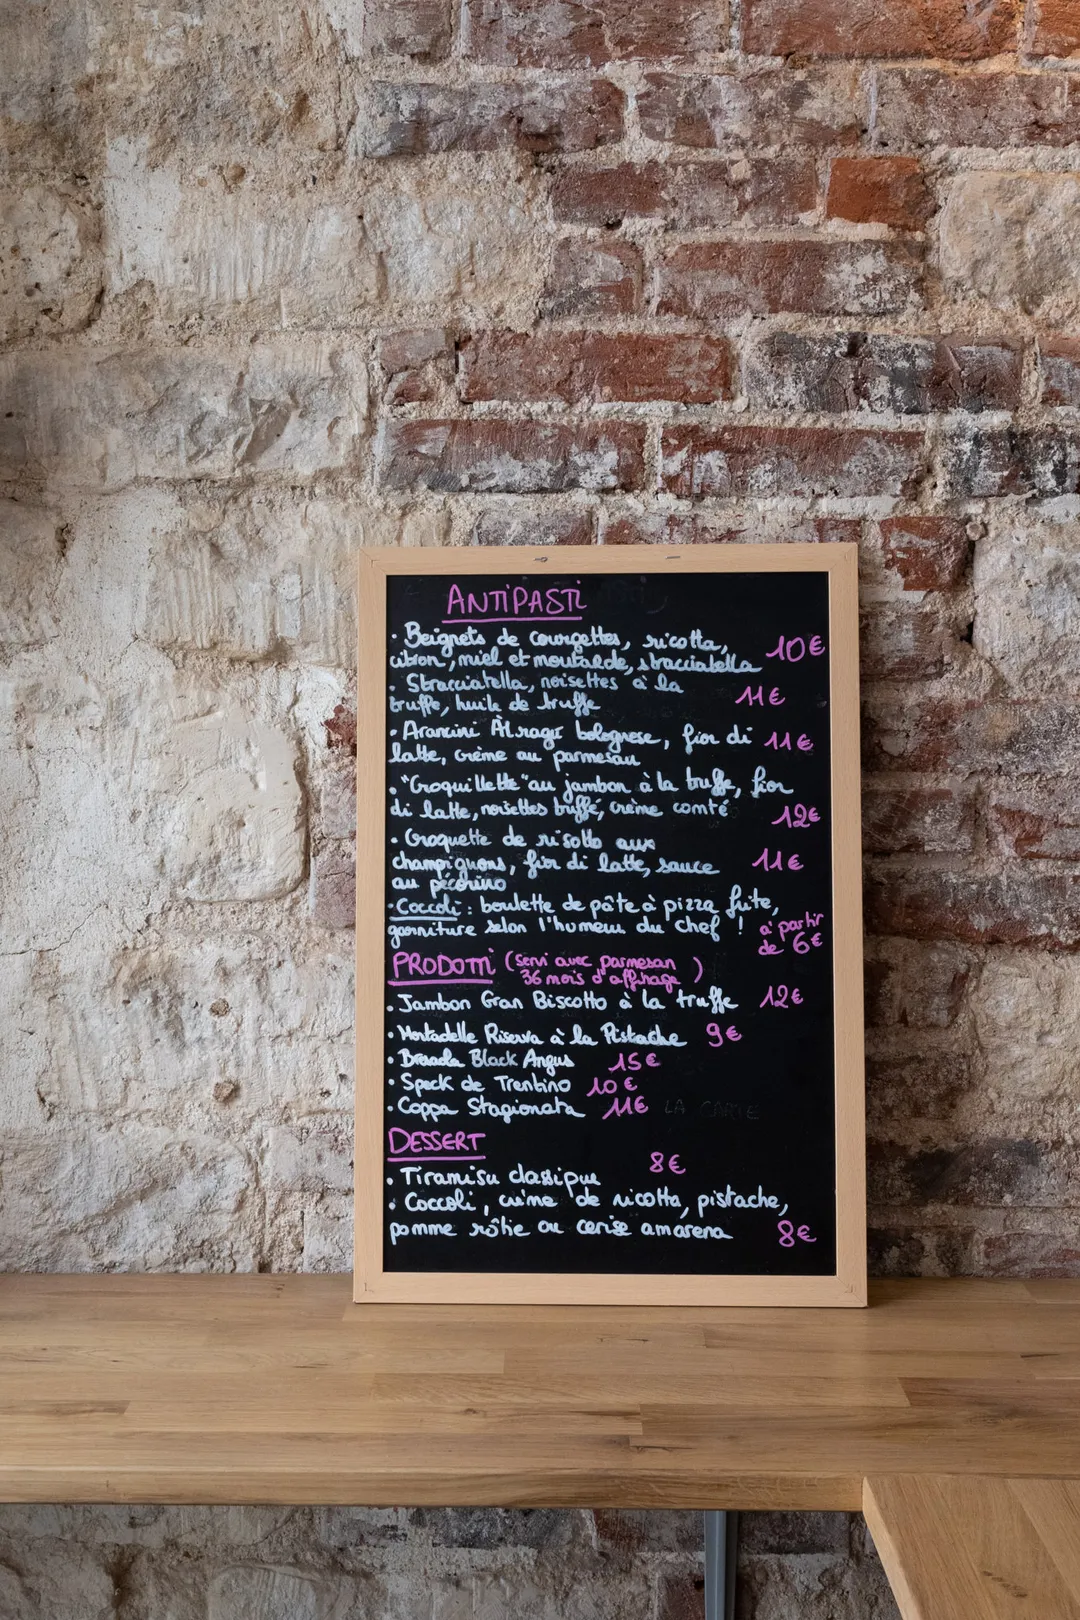 ANTIPASTI
• Beignets de courgettes, ricotta, 10€
citron, miel et moutarde, stracciatella
• Stracciatella, noisettes à la 11€
truffe, huile de truffe
• Arancini Al ragù bolognese, fior di 11€
latte, crème au parmesan
• "Croquillette" au jambon à la truffe, fior
di latte, noisettes truffé, crème comté 12€
• Croquette de risotto aux
champignons, fior di latte, sauce 11€
au pécorino
• Coccoli : boulette de pâte à pizza frite,
garniture selon l'humeur du chef ! à partir
de 6€
PRODOTTI (servi avec parmesan
36 mois d'affinage)
• Jambon Gran Biscotto à la truffe 12€
• Mortadelle Riserva à la Pistache 9€
• Bresaola Black Angus 15€
• Speck de Trentino 10€
• Coppa Stagionata 11€ LA CARTE
DESSERT
• Tiramisu classique 8€
• Coccoli, crème de ricotta, pistache,
pomme rôtie ou cerise amarena 8€